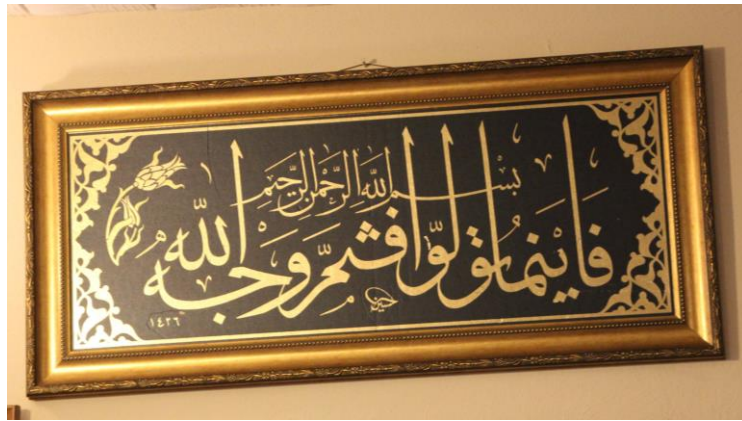 بسم الله الرحمن الرحيم
فَأَيْنَمَا تُوَلُّوا فَثَمَّ وَجْهُ اللَّهِ
١٤٢٦